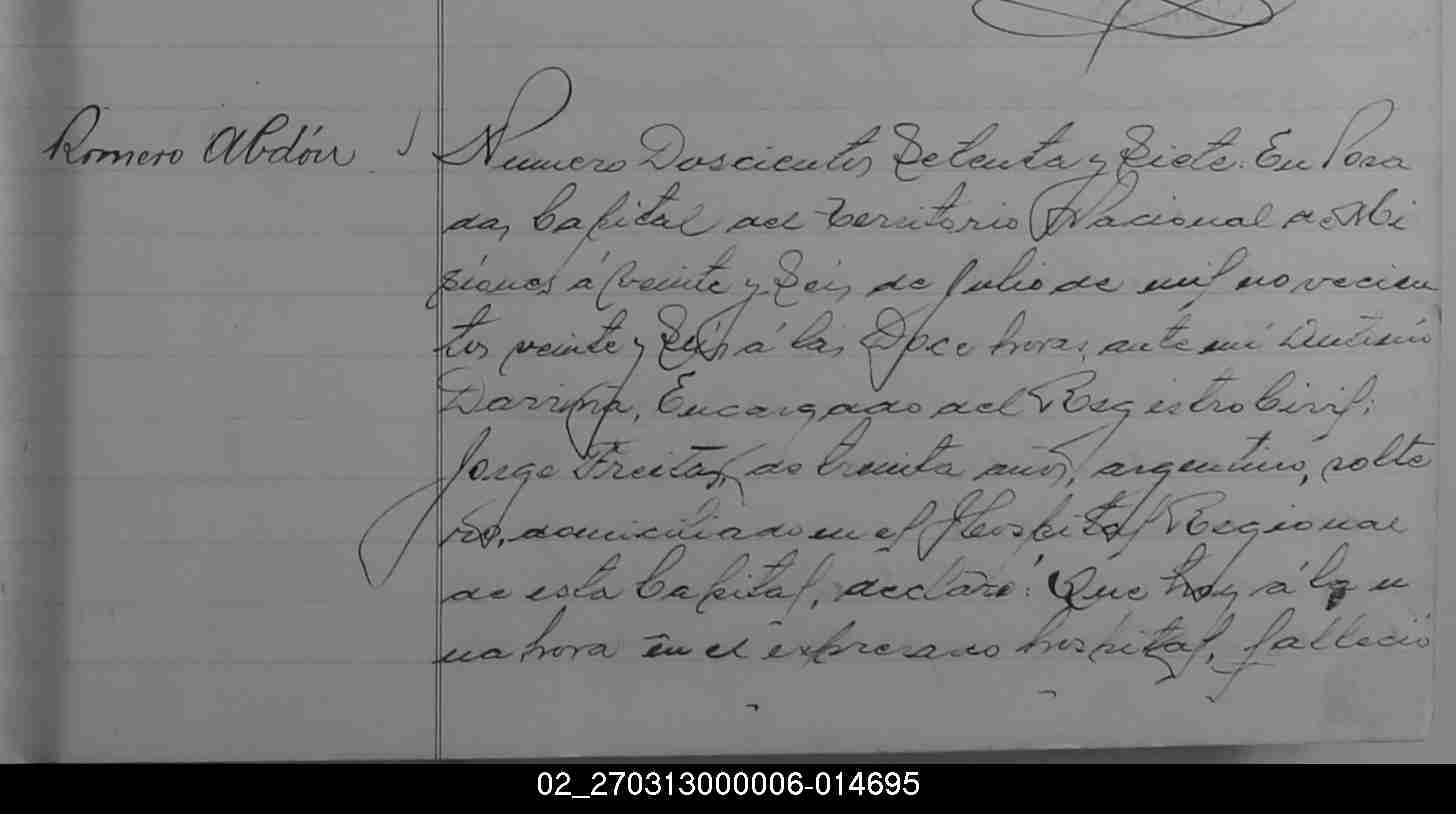 Romero Abdón
Numero Doscientos Setenta y Siete. En Posa
das, Capital del Territorio Nacional de Mi
siones á veinte y Seis de Julio de mil novecien
tos veinte y Seis á las Doce horas, ante mí Antonio
Encargado del Registro Civil;
Jorge Freitas, de treinta años, argentino, solte
ro, domiciliado en el Hospital Regional
de esta Capital, declaró: Que hoy á la u
na hora en el expresado hospital, falleció
02_270313000006-014695